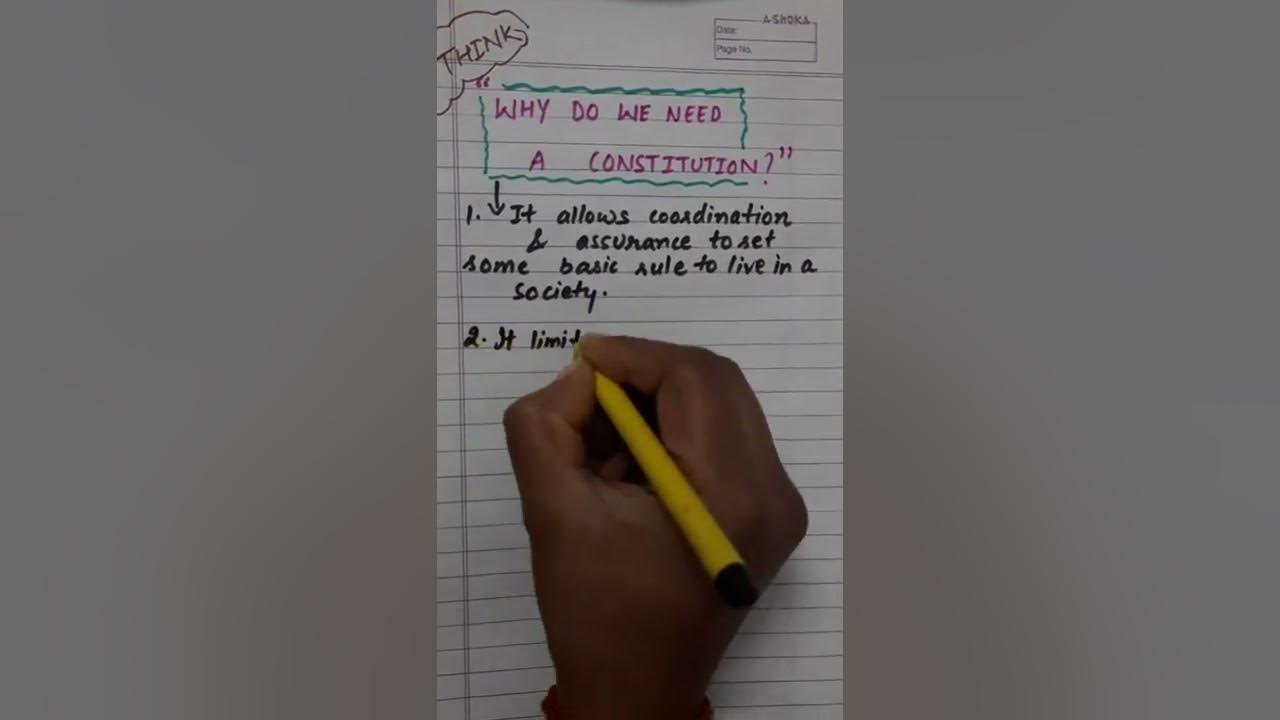 THINK
ASHOKA
Date:
Page No.
"WHY DO WE NEED
A CONSTITUTION?"
1. It allows coordination
& assurance to set
some basic rule to live in a
society.
2. It limit